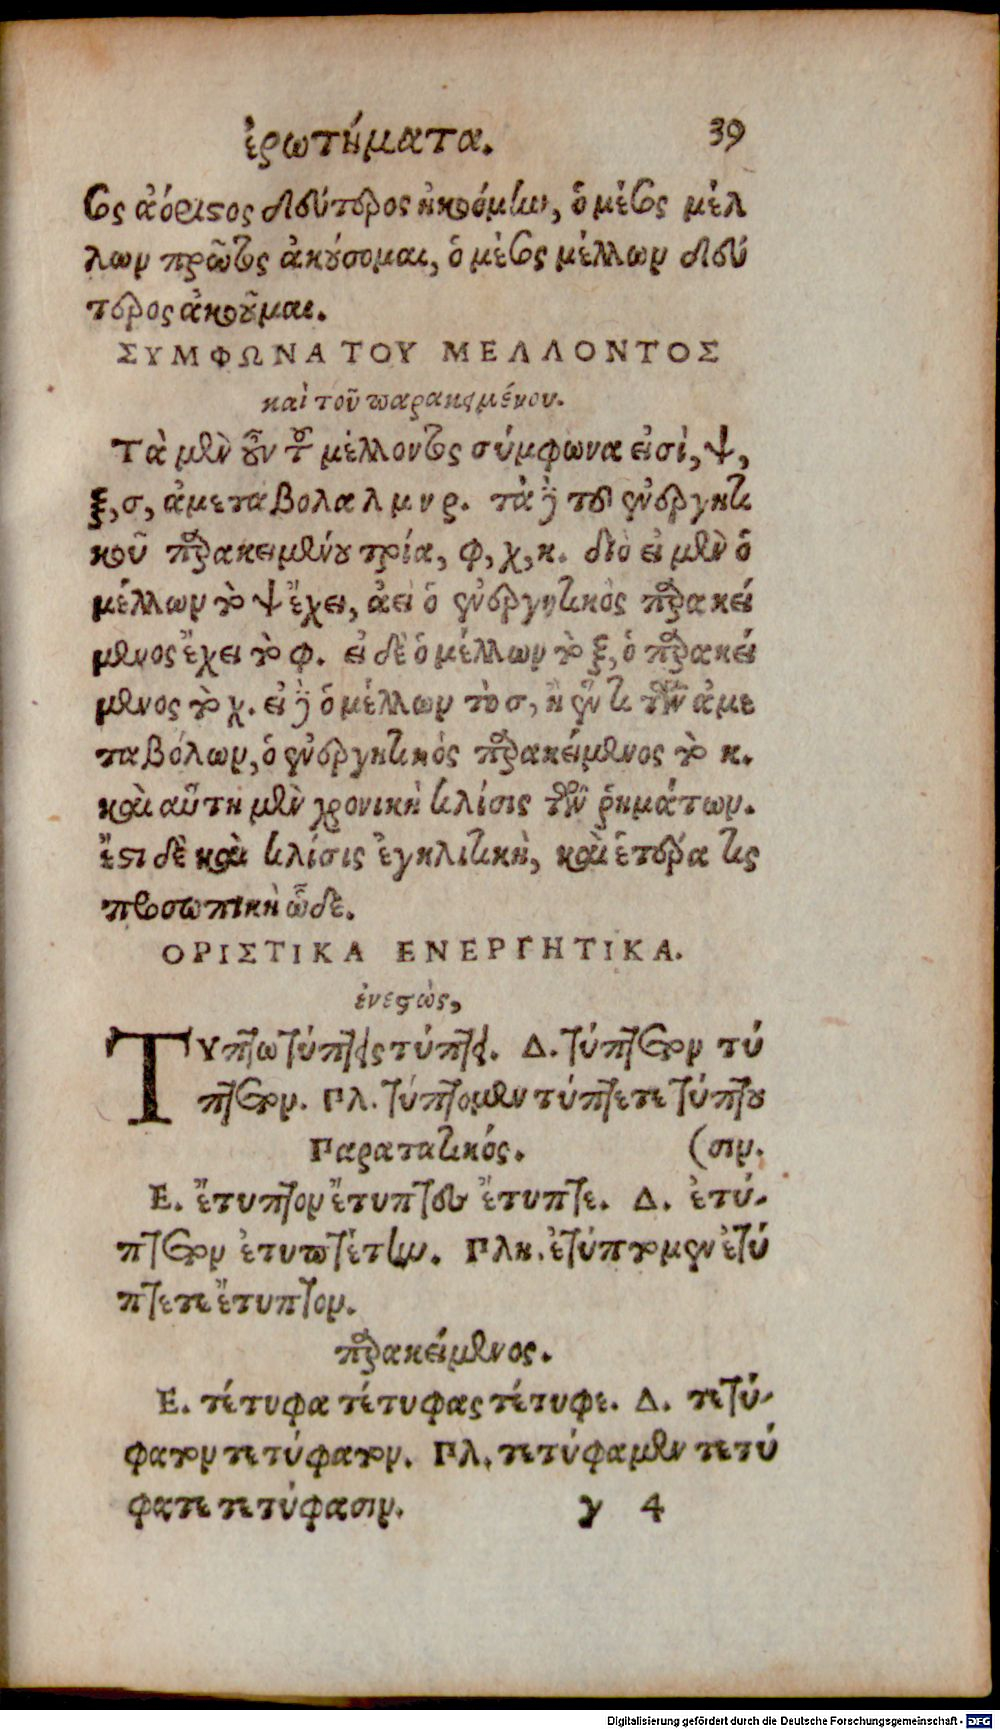 ἐρωτήματα. 39
τος ἀόριστος δεύτερος ἠκοόμην, ὁ μέτος μέλ
λων πρῶτος ἀκούσομαι, ὁ μέτος μέλλων δεύ
τερος ἀκοῦμαι.
ΣΥΜΦΩΝΑ ΤΟΥ ΜΕΛΛΟΝΤΟΣ
καὶ τοῦ παρακειμένου.
Τὰ μὲν οὖν τοῦ μέλλοντος σύμφωνα εἰσὶ, ψ,
ξ, σ, ἀμεταβολα λ μ ν ρ. τὰ δὲ τοῦ ἐνεργητι
κοῦ παρακειμένου τρία, φ, χ, κ. διὸ εἰ μὲν ὁ
μέλλων τὸ ψ ἔχει, ἀεὶ ὁ ἐνεργητικὸς παρακεί
μενος ἔχει τὸ φ. εἰ δὲ ὁ μέλλων τὸ ξ, ὁ παρακεί
μενος τὸ χ. εἰ δὲ ὁ μέλλων τὸ σ, ἢ ἕν τι τῶν ἀμε
ταβόλων, ὁ ἐνεργητικὸς παρακείμενος τὸ κ.
καὶ αὕτη μὲν χρονικὴ κλίσις τῶν ῥημάτων.
ἔστι δὲ καὶ κλίσις ἐγκλιτικὴ, καὶ ἑτέρα τις
προσωπικὴ ὧδε.
ΟΡΙΣΤΙΚΑ ΕΝΕΡΓΗΤΙΚΑ.
ἐνεστὼς,
Τύπτω τύπτεις τύπτει. Δ. τύπτετον τύ
πτετον. Πλ. τύπτομεν τύπτετε τύπτου
Παρατατικός. (σιν.
Ε. ἔτυπτον ἔτυπτες ἔτυπτε. Δ. ἐτύ-
πτετον ἐτυπτέτην. Πλη. ἐτύπτομεν ἐτύ
πτετε ἔτυπτον.
παρακείμενος.
Ε. τέτυφα τέτυφας τέτυφε. Δ. τετύ-
φατον τετύφατον. Πλ. τετύφαμεν τετύ
φατε τετύφασιν. γ 4
Digitalisierung gefördert durch die Deutsche Forschungsgemeinschaft - DFG